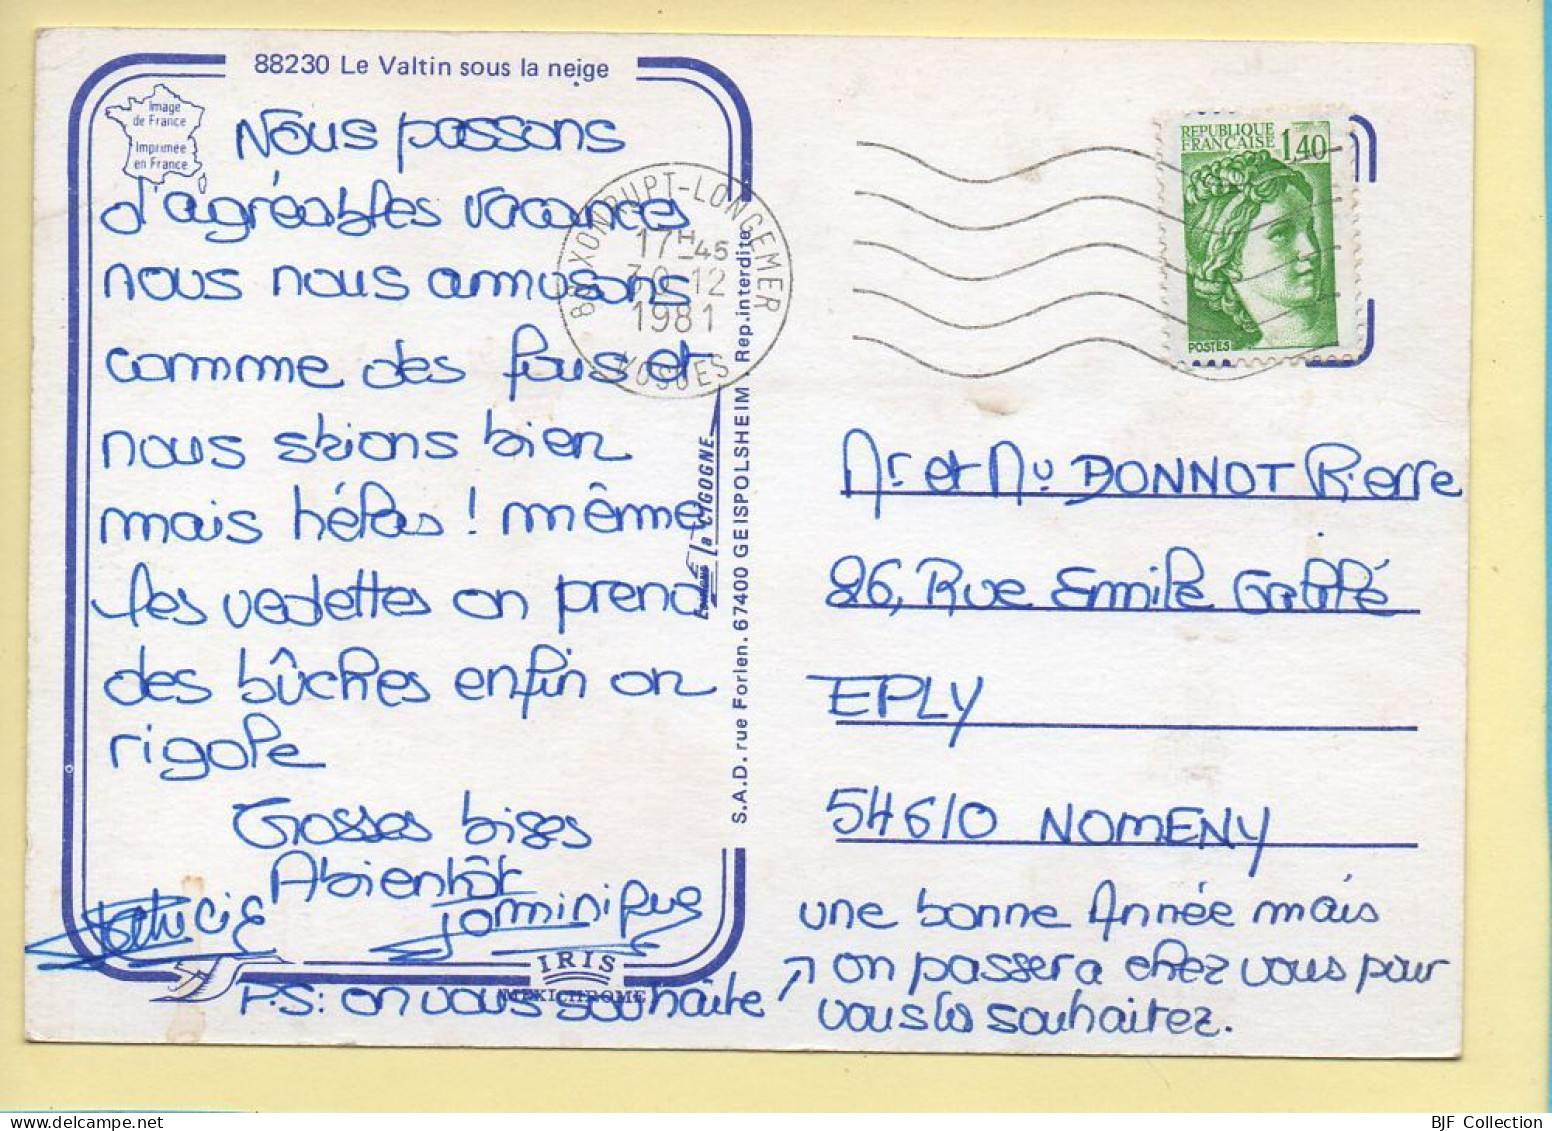 88230 Le Valtin sous la neige
Image
de France
Imprimée
en France
Nous passons
d'agréables vacances
nous nous amusons
comme des fous et
nous skions bien
mais hélas ! même
les vedettes on prend
des bûches enfin on
rigole
Grosses bises
A bientôt
Patricia Dominique
P.S: on vous souhaite
IRIS
MEXICHROME
Editions la CIGOGNE
S.A.D. rue Forlen. 67400 GEISPOLSHEIM Rep. interdite
88 XONRUPT-LONGEMER
17H45
30-12
1981
VOSGES
REPUBLIQUE
FRANCAISE 1,40
POSTES
Mr et Mme DONNOT Pierre
26, Rue Emile Gallé
EPLY
54610 NOMENY
une bonne Année mais
↗ on passera chez vous pour
vous la souhaitez.
BJF Collection